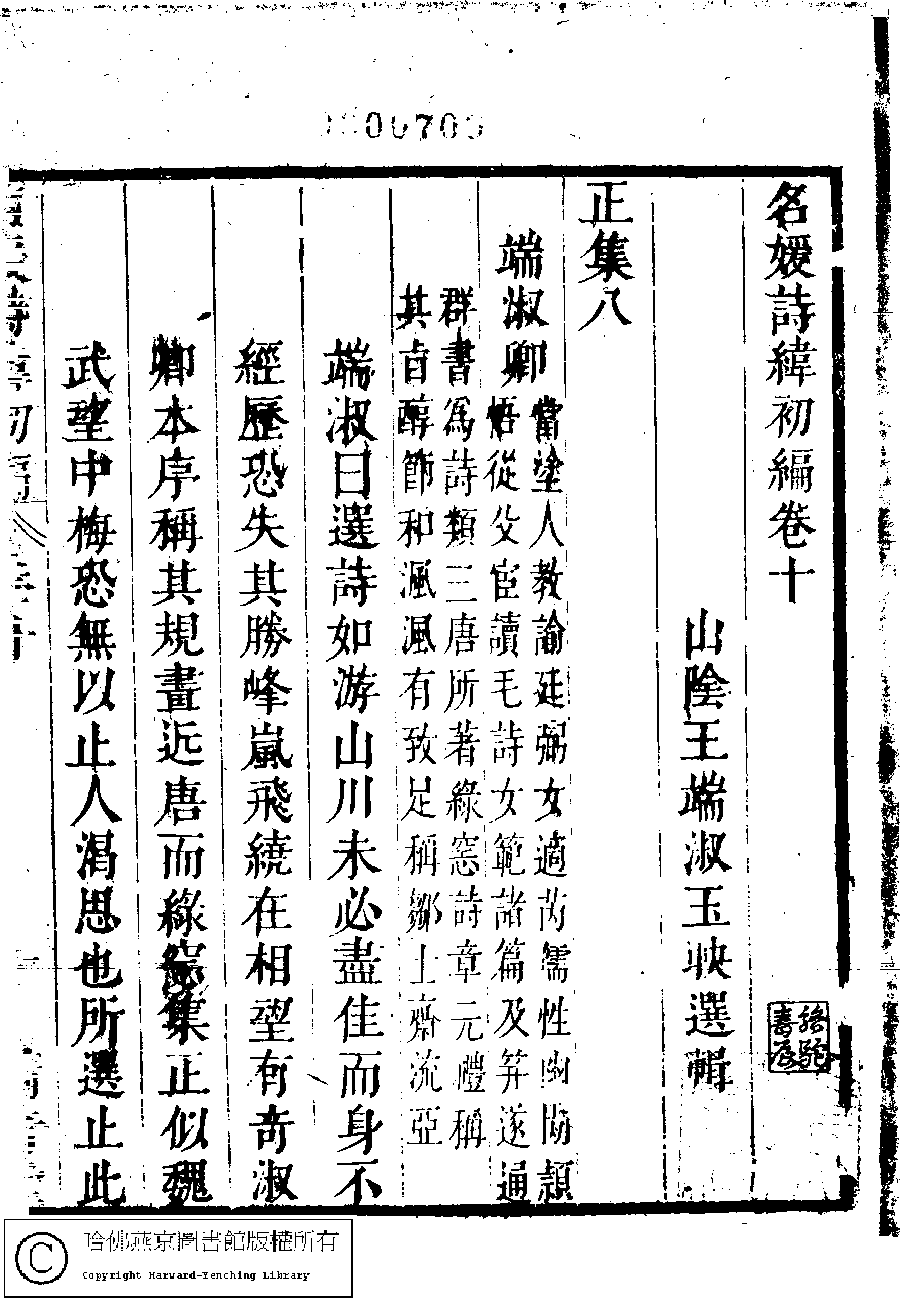 00700
名媛詩緯初編卷十
山陰王端淑玉映選輯
正集八
端淑卿
當塗人教諭廷弼女適芮儒性幽閒頴
悟從父宦讀毛詩女範諸篇及笄遂通
群書為詩類三唐所著綠窓詩章元禮稱
其旨醇節和渢渢有致足稱鄒士齋流亞
端淑曰選詩如游山川未必盡佳而身不
經歷恐失其勝峰嵐飛繞在相望有奇淑
卿本序稱其規畫近唐而綠窓集正似魏
武望中梅恐無以止人渴思也所選止此
哈佛燕京圖書館版權所有
Copyright Harvard-Yenching Library